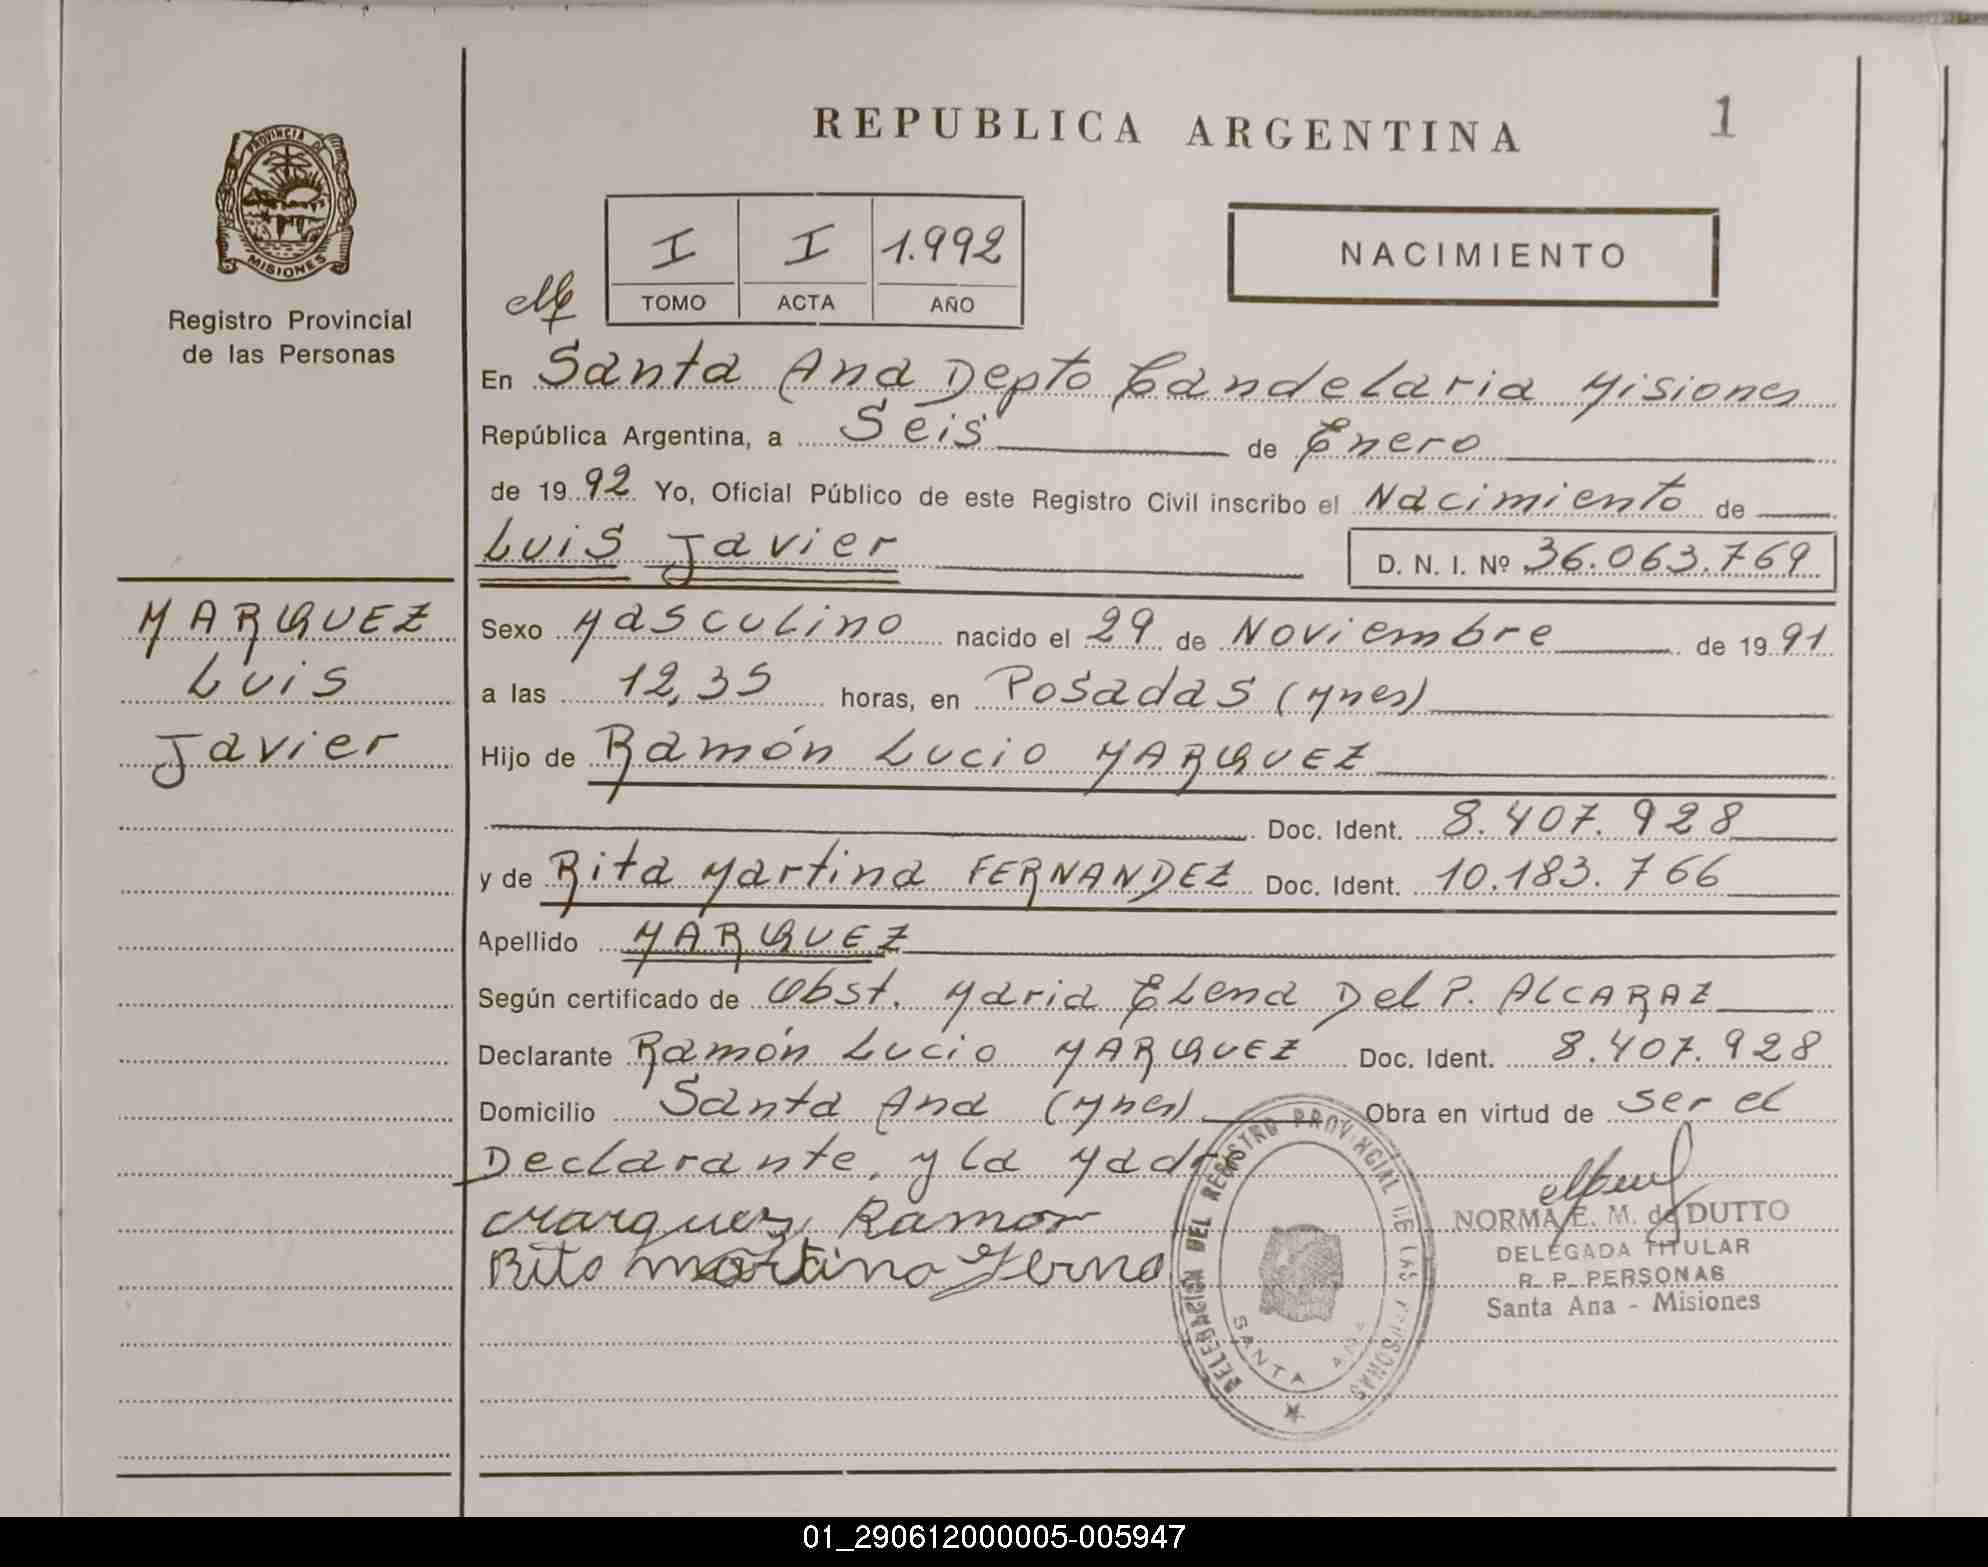 REPUBLICA ARGENTINA
1
PROVINCIA DE
MISIONES
Registro Provincial
de las Personas
I I 1.992
TOMO ACTA AÑO
NACIMIENTO
En Santa Ana Depto Candelaria Misiones
República Argentina, a Seis de Enero
de 1992 Yo, Oficial Público de este Registro Civil inscribo el Nacimiento de
Luis Javier D. N. I. Nº 36.063.769
MARQUEZ
Luis
Javier
Sexo Masculino nacido el 29 de Noviembre de 1991
a las 12,35 horas, en Posadas (Mnes)
Hijo de Ramón Lucio MARQUEZ
Doc. Ident. 8.407.928
y de Rita Martina FERNANDEZ Doc. Ident. 10.183.766
Apellido MARQUEZ
Según certificado de Obst. Maria Elena Del P. ALCARAZ
Declarante Ramón Lucio MARQUEZ Doc. Ident. 8.407.928
Domicilio Santa Ana (Mnes) Obra en virtud de ser el
Declarante, y la Madre
Marquez Ramon
Rita martina Ferna
DELEGACION DEL REGISTRO PROVINCIAL DE LAS PERSONAS
SANTA ANA
NORMA E. M. de DUTTO
DELEGADA TITULAR
R. P. PERSONAS
Santa Ana - Misiones
01_290612000005-005947